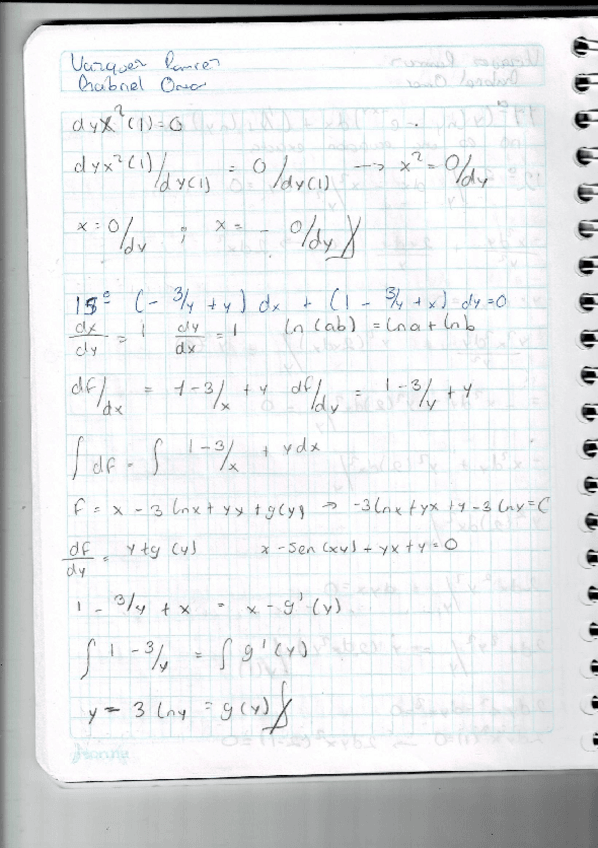 Vazquez
Gabriel Omar
dyx²(1)=0
dyx²(1)/dy(1) = 0/dy(1) → x² = 0/dy
x = 0/dy ; x = - 0/dy
15º (- 3/y + y) dx + (1 - 3/y + x) dy = 0
dx/dy = 1 dy/dx = 1 ln(ab) = lna + lnb
df/dx = 1-3/x + y df/dy = 1-3/y + y
∫ df = ∫ 1-3/x + ydx
f = x - 3 lnx + yx + g(y) → -3lnx + yx + y - 3 lny = C
df/dy = y + g (y) x - sen (xy) + yx + y = 0
1 - 3/y + x = x - g'(y)
∫ 1 - 3/y = ∫ g'(y)
y = 3 lny = g(y)